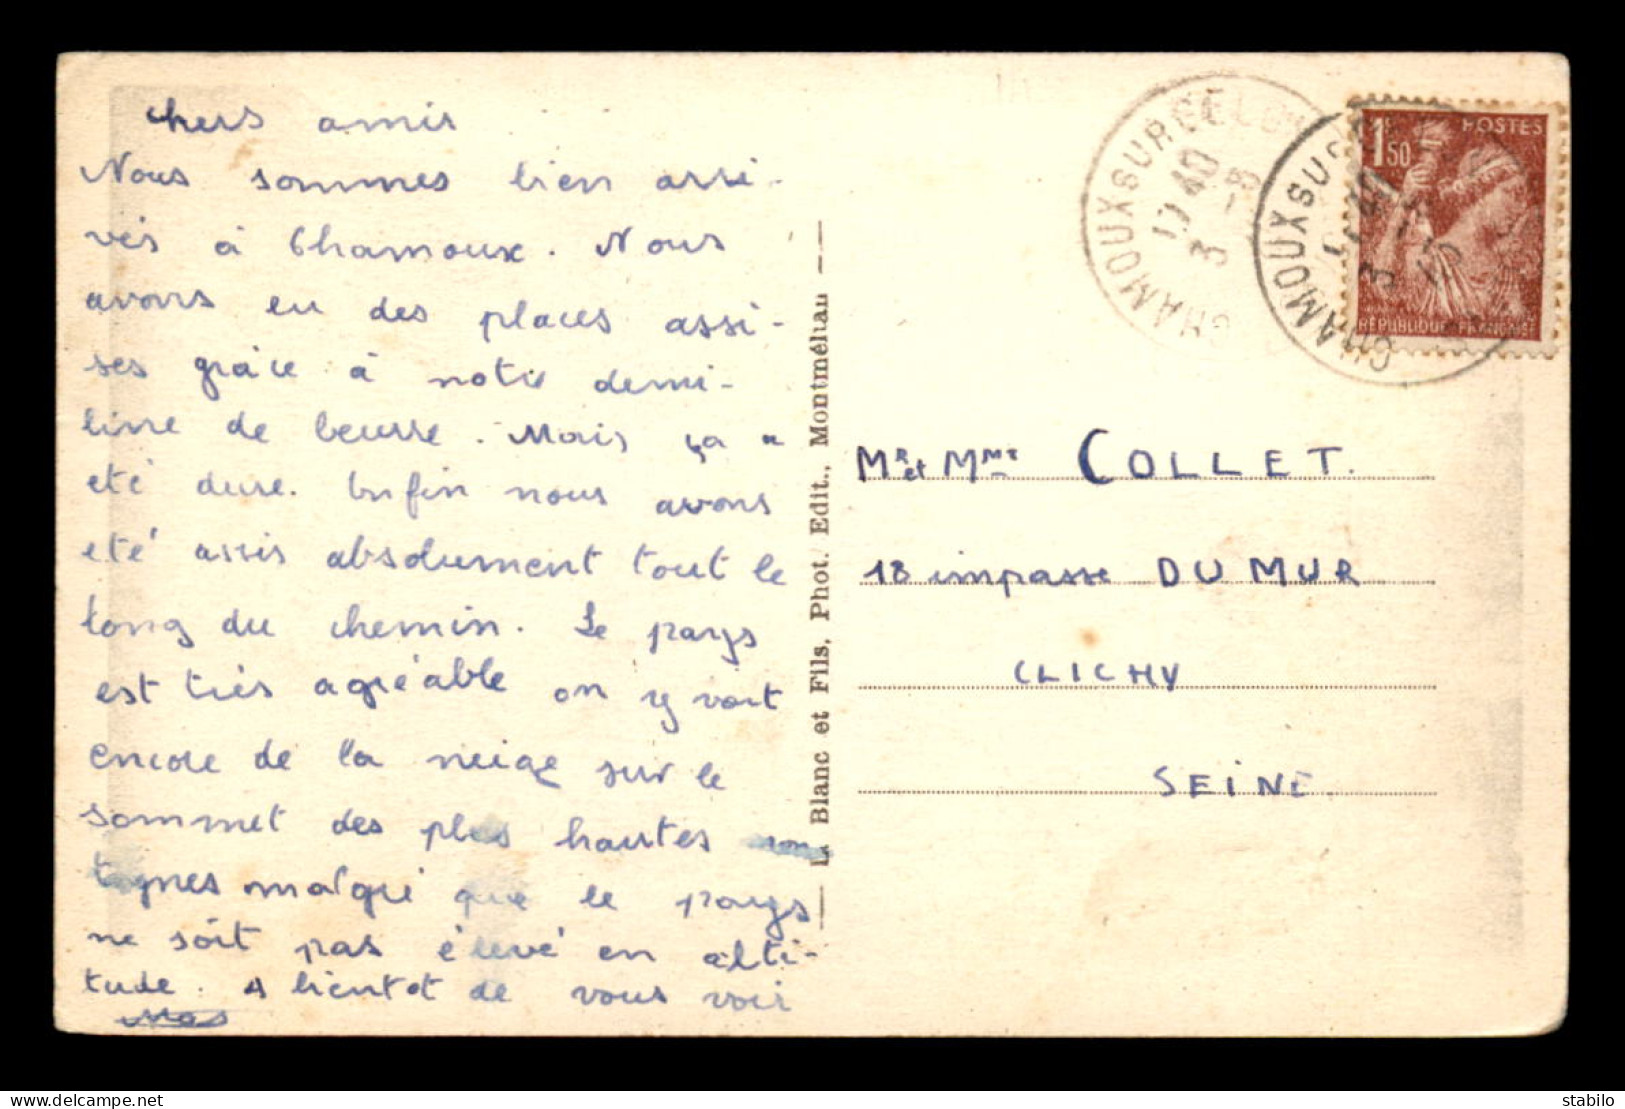 chers amis
Nous sommes bien arri-
vés à Chamoux. Nous
avons eu des places assi-
ses grâce à notre demi-
livre de beurre. Mais ça a
eté dure. Enfin nous avons
eté assis absolument tout le
long du chemin. Le pays
est très agréable on y voit
encore de la neige sur le
sommet des plus hautes mon
tagnes malgré que le pays
ne soit pas élevé en alti-
tude. A bientot de vous voir
Blanc et Fils, Phot. Edit., Montmélian
CHAMOUX SUR GELON
19 40
3 -5
CHAMOUX SU
3
1F50 POSTES
RÉPUBLIQUE FRANÇAISE
Mr et Mme COLLET.
18 impasse DU MUR
CLICHY
SEINE.
stabilo
www.delcampe.net